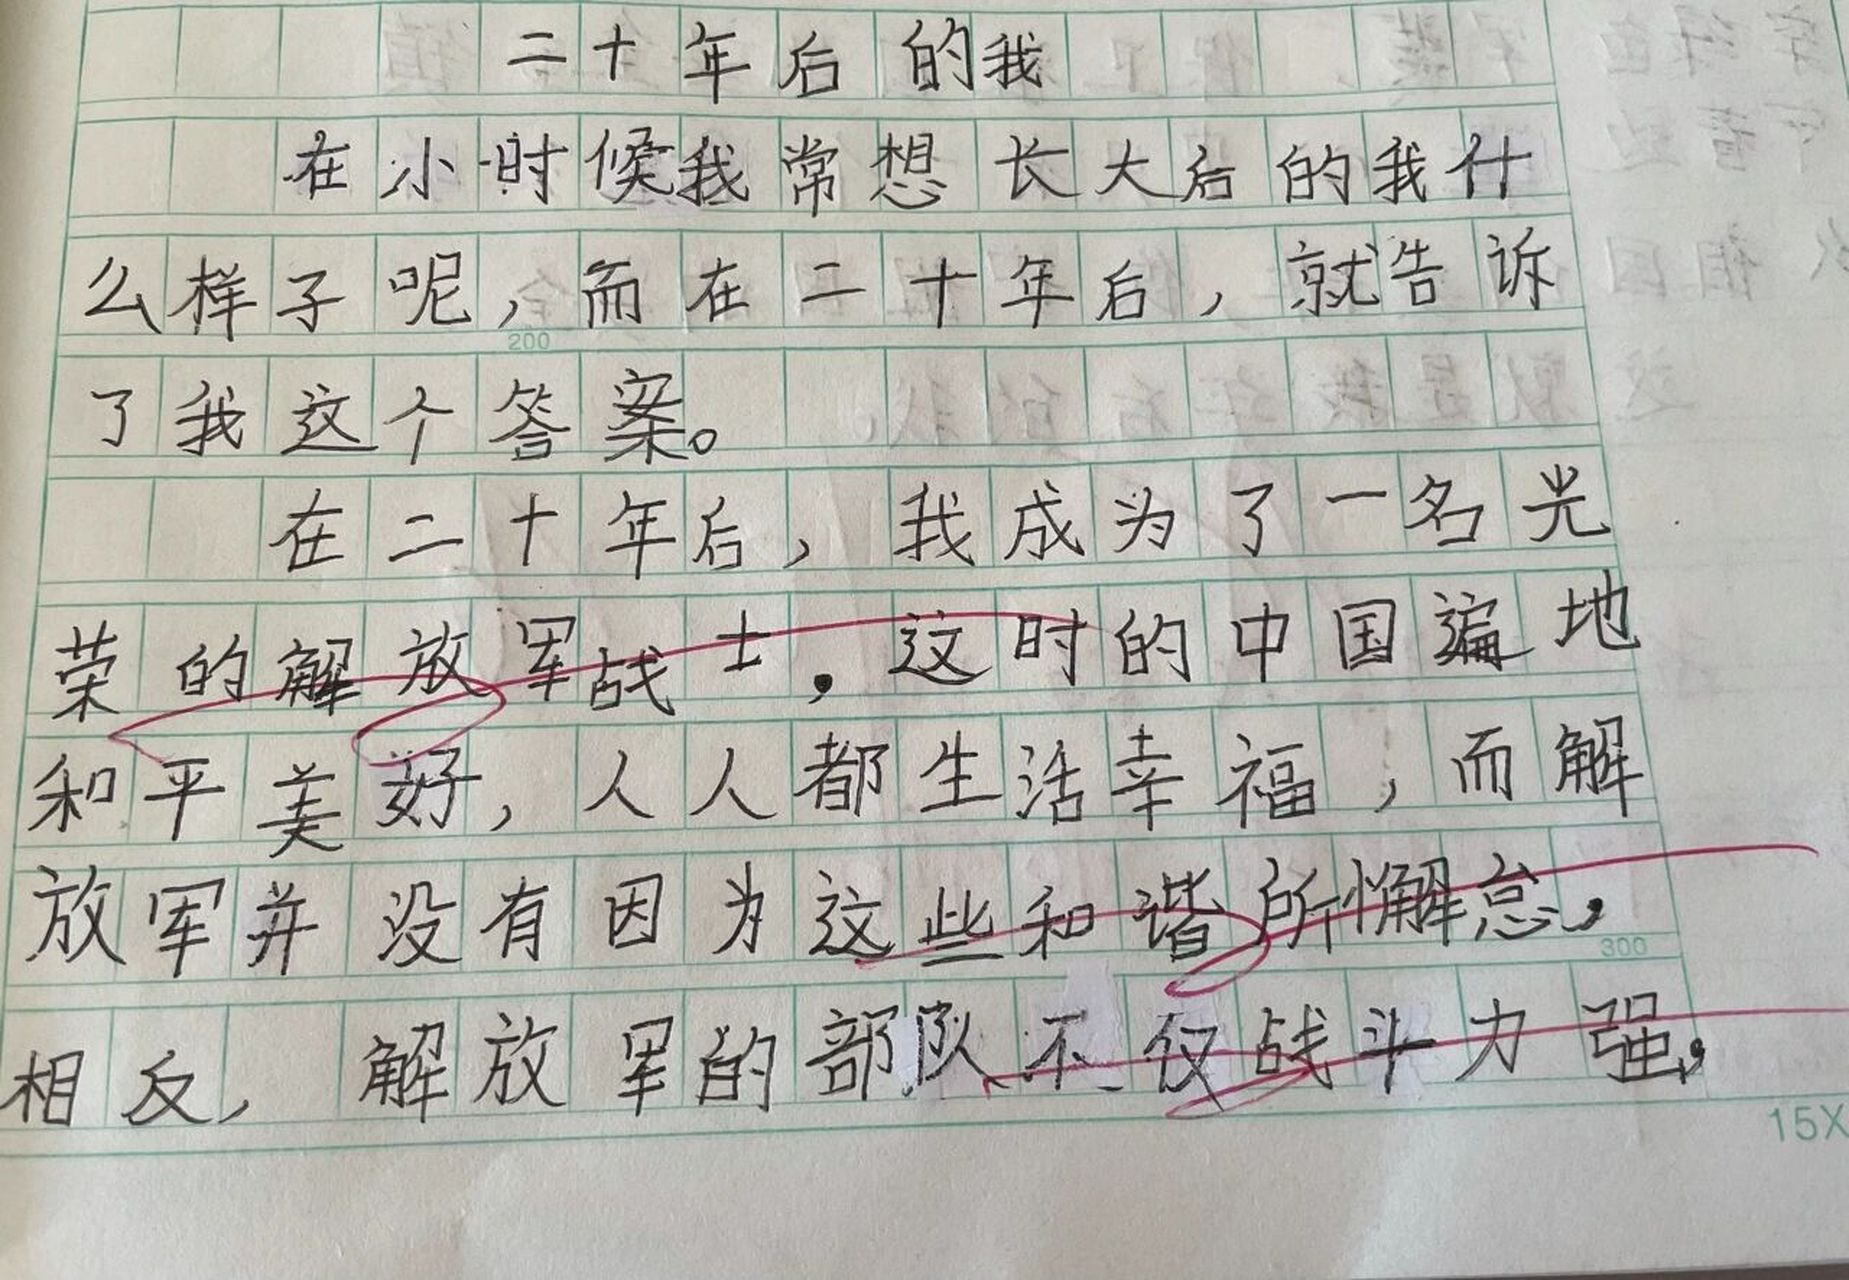 二十年后的我
在小时候我常想长大后的我什
么样子呢，而在二十年后，就告诉
200
了我这个答案。
在二十年后，我成为了一名光
荣的解放军战士，这时的中国遍地
和平美好，人人都生活幸福，而解
放军并没有因为这些和谐所懈怠，
300
相反，解放军的部队不仅战斗力强，
15X